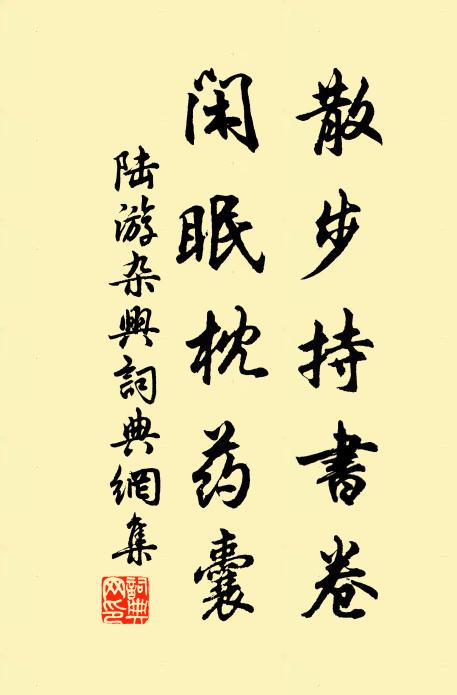 散步持書卷
闲眠枕药囊
陆游杂興詞典網集
詞典網印